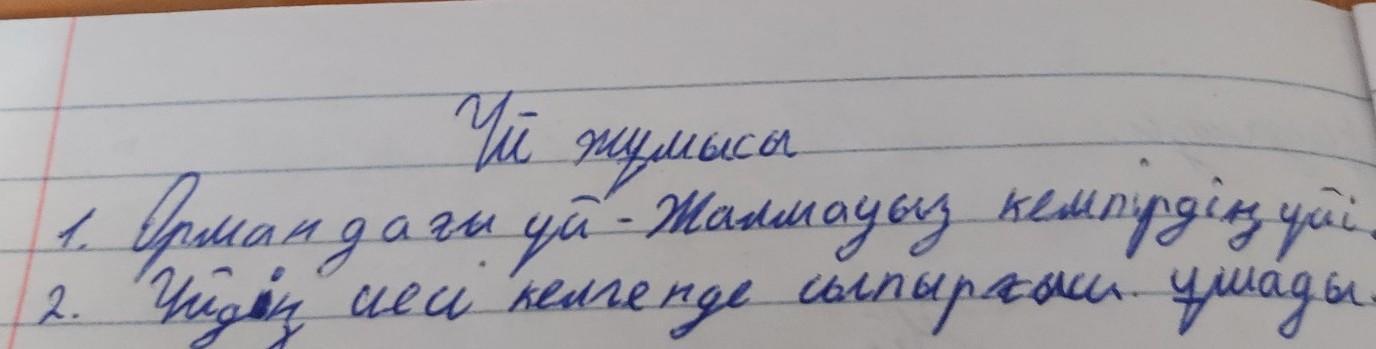 Үй жұмысы
1. Ормандағы үй - Жалмауыз кемпірдің үйі.
2. Үйдің иесі келгенде сыпырғыш ұшады.